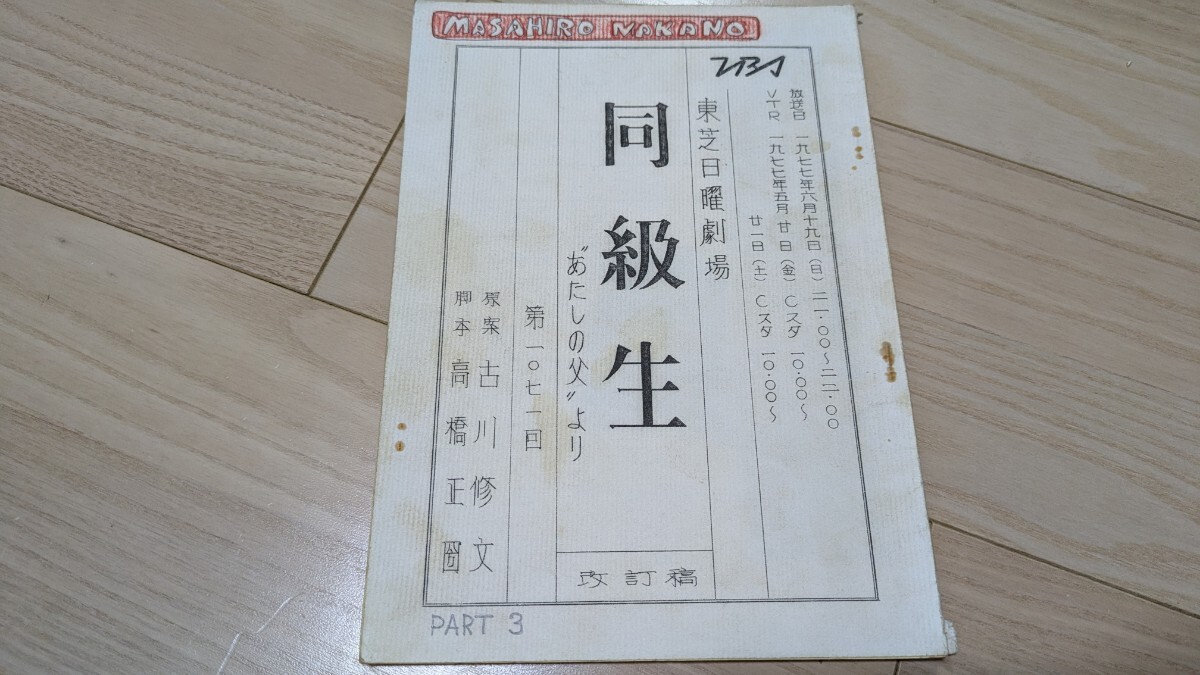 MASAHIRO NAKANO
TBS
放送日 一九七七年六月十九日(日) 二一・〇〇〜二二・〇〇
VTR 一九七七年五月 廿日(金) Cスタ 一〇・〇〇〜
廿一日(土) Cスタ 一〇・〇〇〜
東芝日曜劇場
同級生
〝あたしの父〟より
改訂稿
第一〇七一回
原案 古川修文
脚本 高橋正圀
PART 3